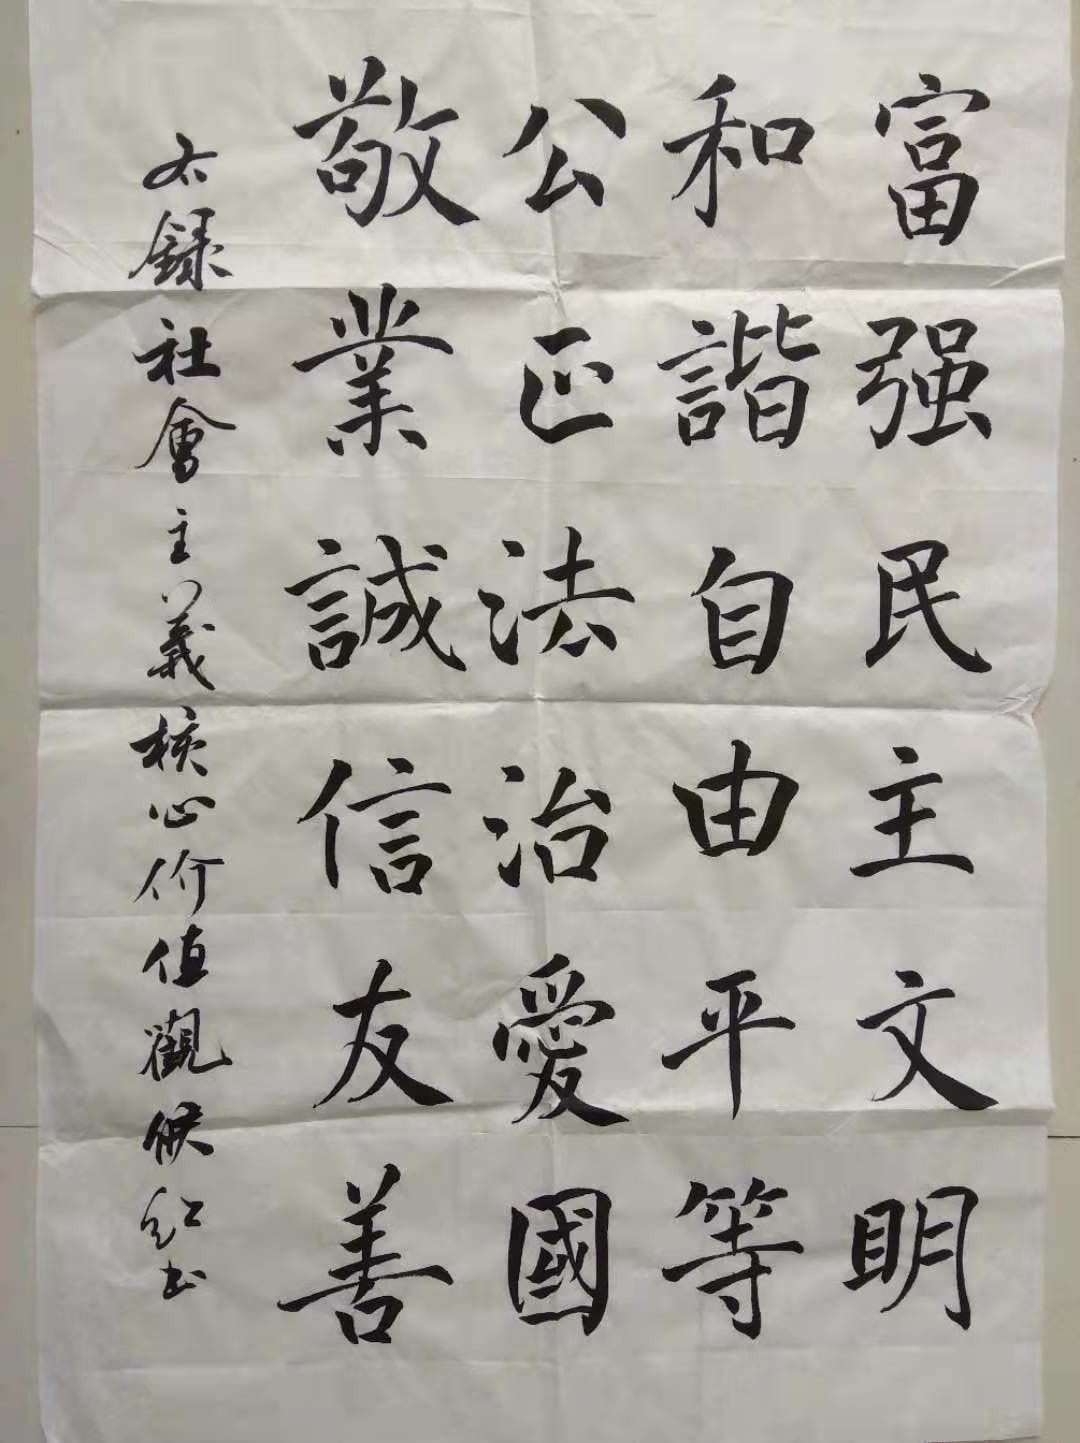 富强民主文明
和諧自由平等
公正法治愛國
敬業誠信友善
右録社會主義核心价值觀候红书